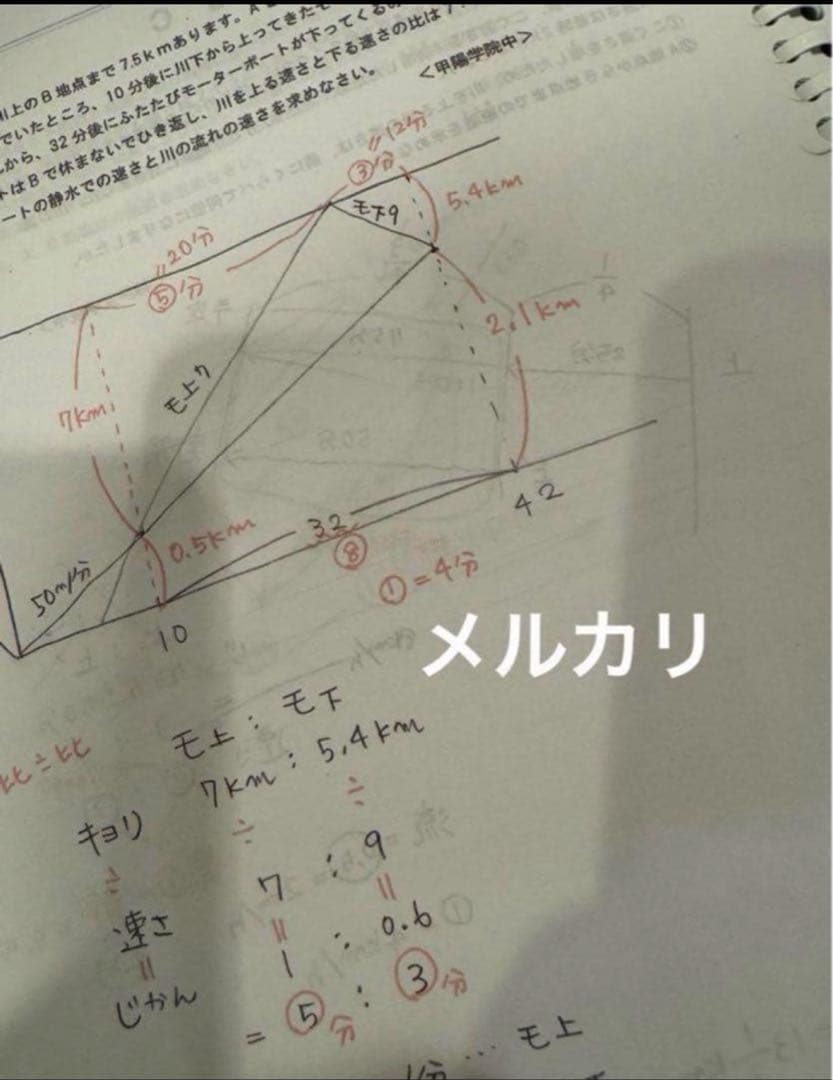 川上のB地点まで7.5kmあります。A
でいたところ、10分後に川下から上ってきたモ
から、32分後にふたたびモーターボートが下ってくる
トはBで休まないでひき返し、川を上る速さと下る速さの比は7:
ートの静水での速さと川の流れの速さを求めなさい。
<甲陽学院中>
12分
③分
モ下9
5.4km
20分
⑤分
2.1km
モ上7
7km
0.5km
32
42
⑧
50m/分
①=4分
10
メルカリ
モ上:モ下
比÷比
キョリ 7km:5.4km
÷ ÷ ÷
速さ 7:9
1:0.6
じかん
=⑤分:③分
分…モ上